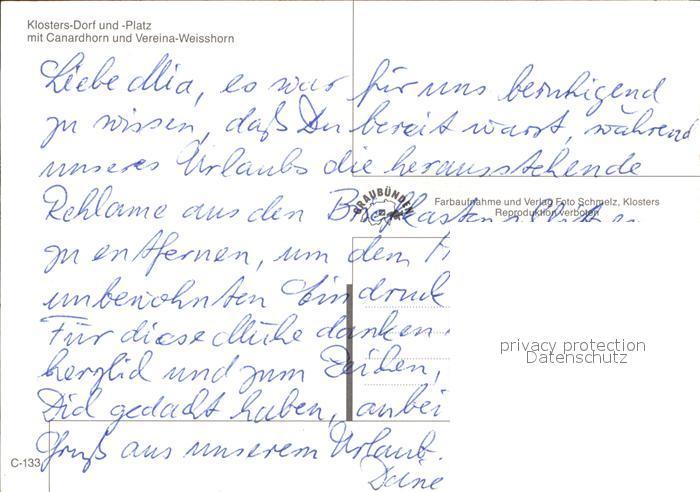 Klosters-Dorf und -Platz
mit Canardhorn und Vereina-Weisshorn
Liebe Mia, es war für uns beruhigend
zu wissen, daß Du bereit warst, während
unseres Urlaubs die herausstehende
Reklame aus den Briefkasten
GRAUBÜNDEN
Farbaufnahme und Verlag Foto Schmelz, Klosters
Reproduktion verboten
zu entfernen, um dem
unbewohnten Eindruck
Für diese Mühe danken
herzlich und zum Zeichen,
Dich gedacht haben, anbei
privacy protection
Datenschutz
Gruß aus unserem Urlaub.
C-133
Deine